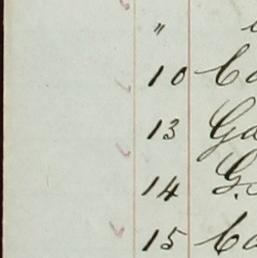 "
10 Ca
13 Ga
14 G.
15 Ca